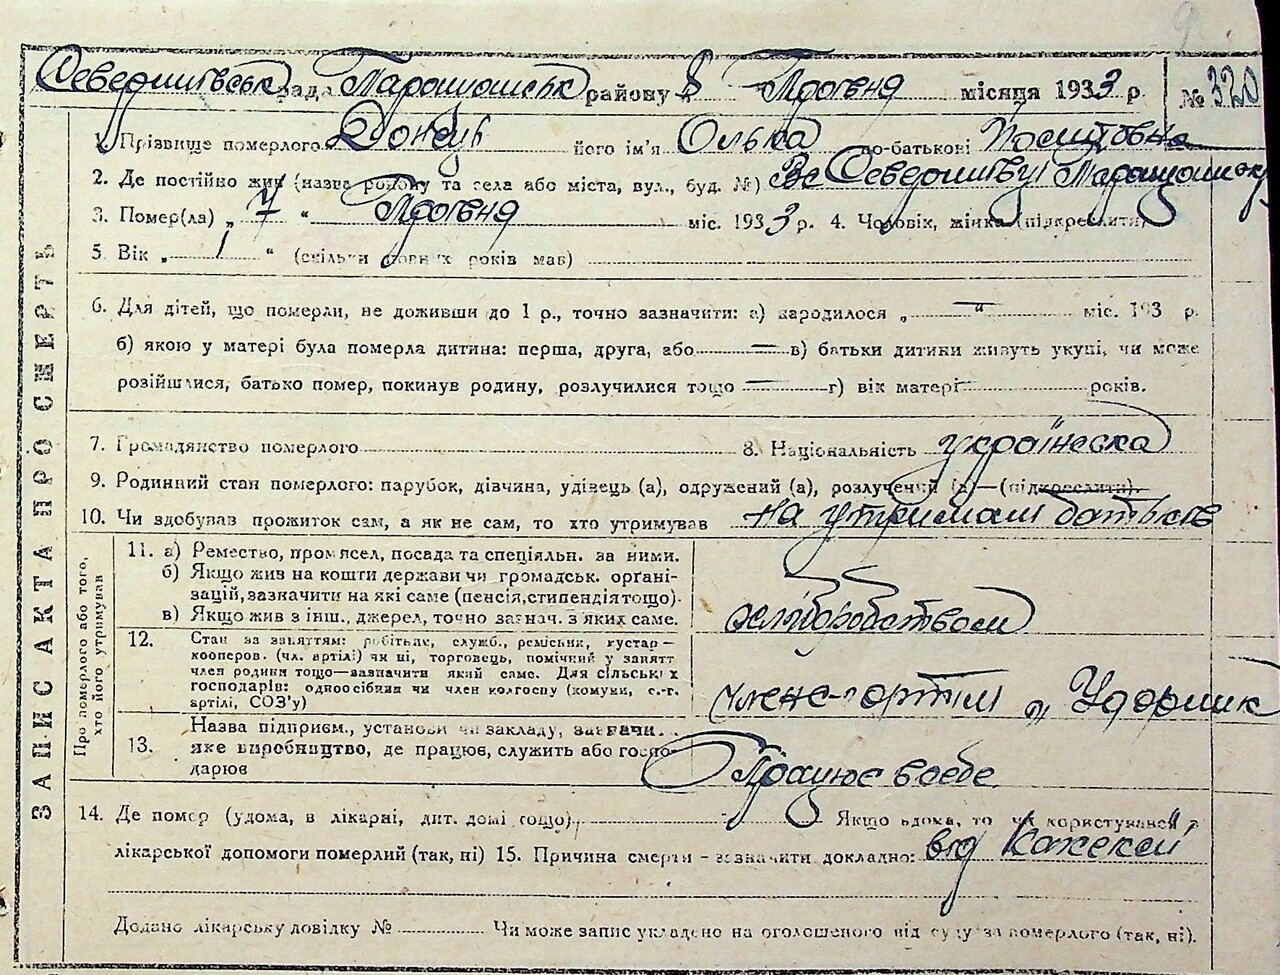 9
Северинівськ рада Таращанськ району 8 Травня місяця 1933 р. № 320
1. Прізвище померлого Донець його ім'я Олька по-батькові
2. Де постійно жив (назва району та села або міста, вул., буд. №) Вс Северинівці Таращанську
3. Помер(ла) „ 7 “ Травня міс. 1933 р. 4. Чоловік, жінка (підкреслити)
5. Вік „ 1 “ (скільки повних років мав)
6. Для дітей, що померли, не доживши до 1 р., точно зазначити: а) народилося „ — “ міс. 193 р.
б) якою у матері була померла дитина: перша, друга, або — в) батьки дитини живуть укупі, чи може
розійшлися, батько помер, покинув родину, розлучилися тощо — г) вік матері років.
7. Громадянство померлого 8. Національність українска
9. Родинний стан померлого: парубок, дівчина, удівець (а), одружений (а), розлучений (а)—(підкреслити).
10. Чи здобував прожиток сам, а як не сам, то хто утримував на утриман батьків
ЗАПИС АКТА ПРО СМЕРТЬ
Про померлого або того, хто його утримував
11. а) Ремество, промисел, посада та спеціяльн. за ними.
б) Якщо жив на кошти держави чи громадськ. орґані-
зацій, зазначити на які саме (пенсія, стипендія тощо).
в) Якщо жив з інш. джерел, точно зазнач. з яких саме.
хліборобством
12. Стан за заняттям: робітник, служб., реміснік, кустар—
кооперов. (чл. артілі) чи ні, торговець, помічний у занятт
член родини тощо—зазначити який саме. Для сільськ х
господарів: одноосібник чи член колгоспу (комуни, с.-г.
артілі, СОЗ'у)
член-артілі „Ударник
13. Назва підприєм., установи чи закладу, зазначи.
яке виробництво, де працює, служить або госпо-
дарює
Працює всебе
14. Де помер (удома, в лікарні, дит. домі тощо) Якщо вдома, то чи користувався з
лікарської допомоги померлий (так, ні) 15. Причина смерти - зазначити докладно: від
Додано лікарську довідку № Чи може запис укладено на оголошеного від суду за померлого (так, ні).